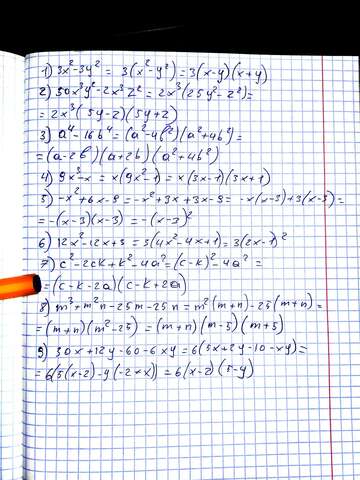 1) 3x²-3y² = 3(x²-y²)=3(x-y)(x+y)
2) 50x³y²-2x³z² = 2x³(25y²-z²)=
=2x³(5y-z)(5y+z)
3) a⁴-16b⁴=(a²-4b²)(a²+4b²)=
=(a-2b)(a+2b)(a²+4b²)
4) 9x³-x = x(9x²-1)=x(3x-1)(3x+1)
5) -x²+6x-9=-x²+3x+3x-9= -x(x-3)+3(x-3)=
=-(x-3)(x-3)=-(x-3)²
6) 12x²-12x+3=3(4x²-4x+1)=3(2x-1)²
7) c²-2ck+k²-4a²=(c-k)²-4a²=
=(c-k-2a)(c-k+2a)
8) m³+m²n-25m-25n=m²(m+n)-25(m+n)=
=(m+n)(m²-25)=(m+n)(m-5)(m+5)
9) 30x+12y-60-6xy=6(5x+2y-10-xy)=
=6(5(x-2)-y(-2+x))=6(x-2)(5-y)